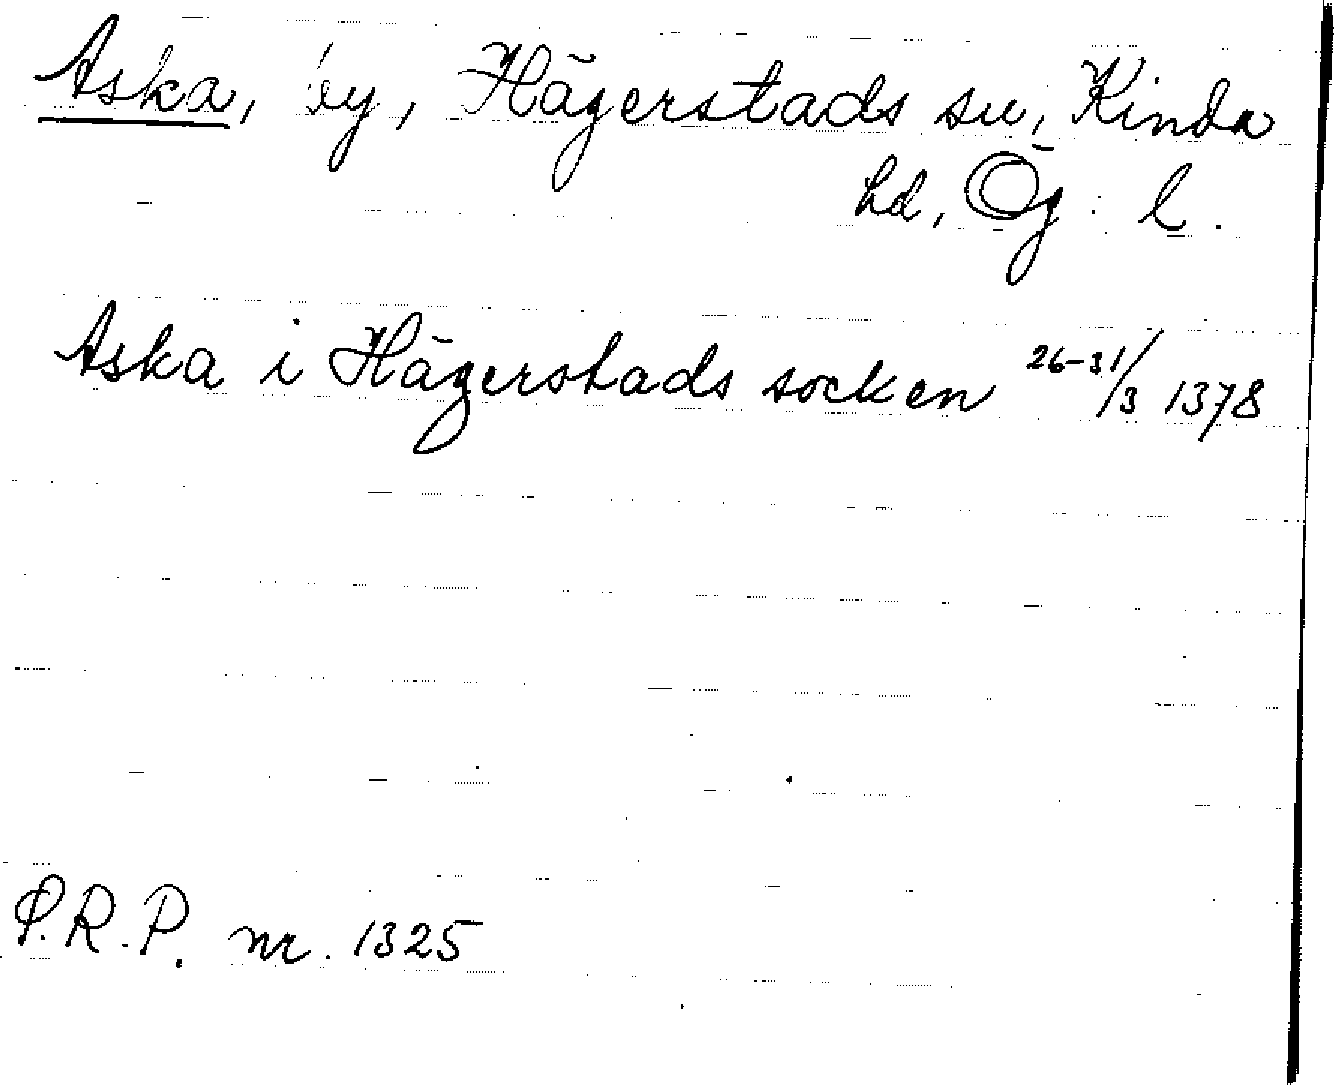 Aska, by, Hägerstads sn, Kinda
hd, Ög. l.
Aska i Hägerstads socken 26-31/3 1378
P.R.P. nr. 1325